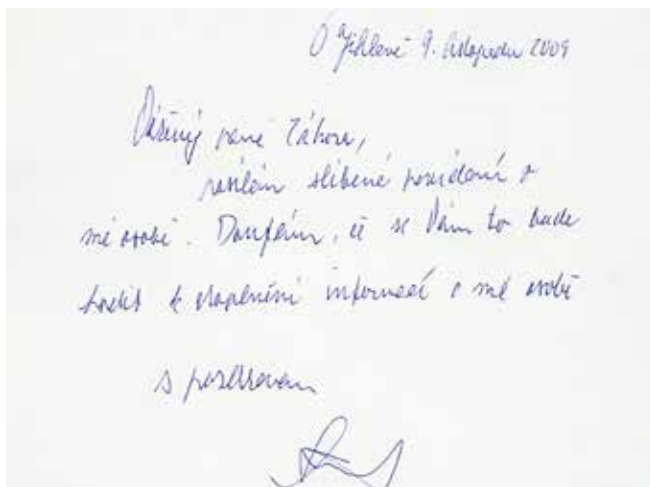 V Jihlavě 9. listopadu 2009
Vážený pane Záhoro,
posílám slíbené povídání o
mé osobě. Doufám, že se Vám to bude
hodit k doplnění informací o mé osobě
s pozdravem